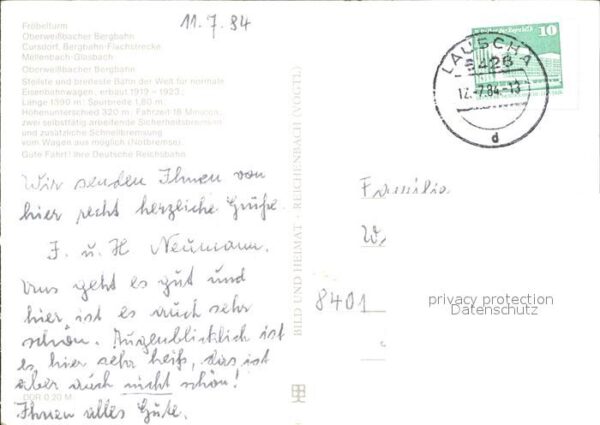 Fröbelturm
Oberweißbacher Bergbahn
Cursdorf, Bergbahn-Flachstrecke
Mellenbach-Glasbach
Oberweißbacher Bergbahn
Steilste und breiteste Bahn der Welt für normale
Eisenbahnwagen, erbaut 1919 – 1923.
Länge 1390 m, Spurbreite 1,80 m.
Höhenunterschied 320 m, Fahrzeit 18 Minuten,
zwei selbsttätig arbeitende Sicherheitsbremsen
und zusätzliche Schnellbremsung
vom Wagen aus möglich (Notbremse).
Gute Fahrt! Ihre Deutsche Reichsbahn
11.7.84
Wir senden Ihnen von
hier recht herzliche Grüße.
F. u. H Neumann.
Uns geht es gut und
hier ist es auch sehr
schön. Augenblicklich ist
es hier sehr heiß, das ist
aber auch nicht schön!
Ihnen alles Gute.
DDR 0,20 M
BILD UND HEIMAT · REICHENBACH (VOGTL)
10
LAUSCHA
6426
12.-7.84-13
d
Familie
W
8401
privacy protection
Datenschutz